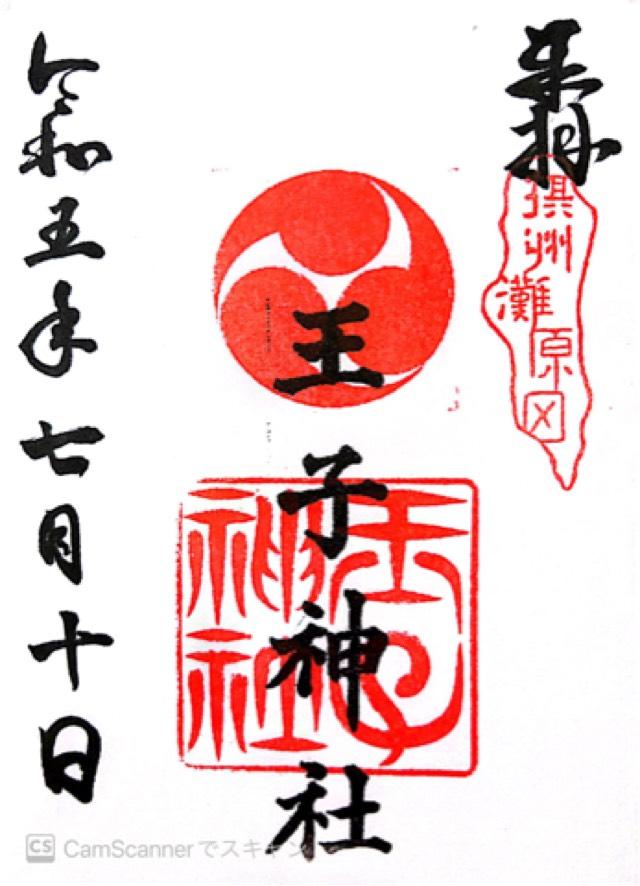 奉拝
摂州
灘
原田
王子神社
王子
神社
令和五年七月十日
CS CamScannerでスキャン